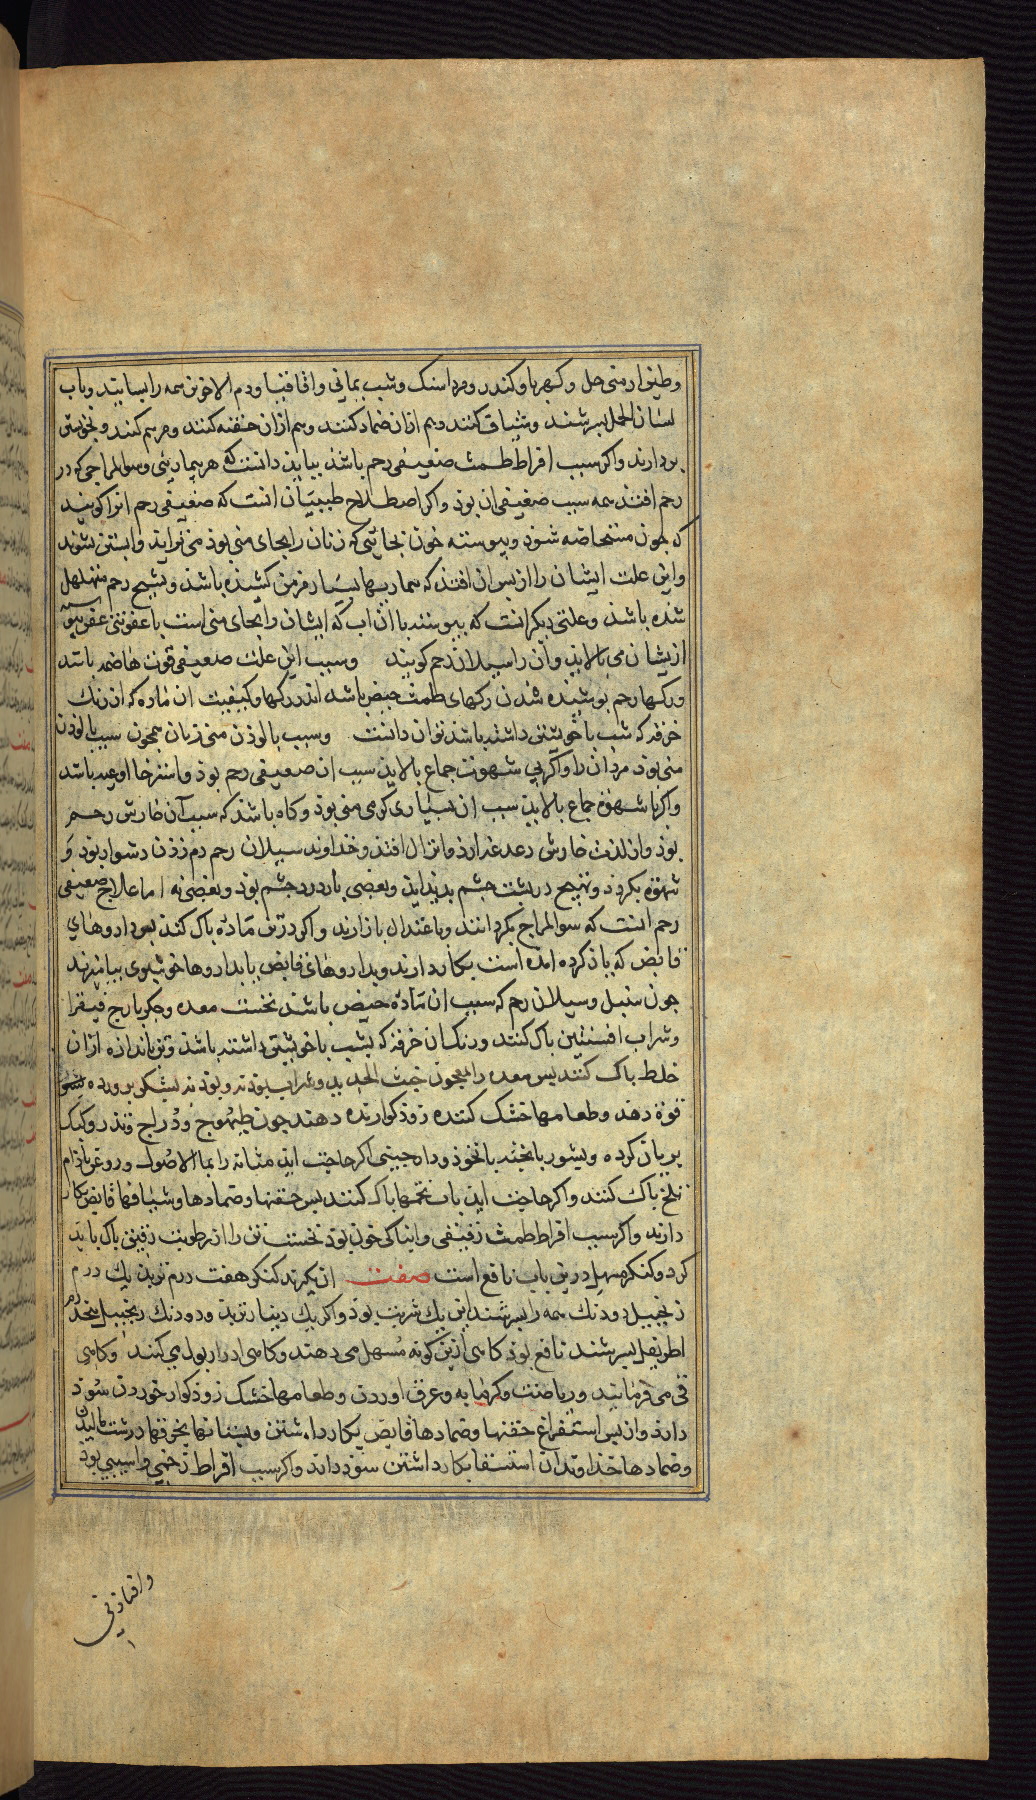 و طین ارمنی حل و کهربا و کندر و مرداسنک و شب یمانی و اقاقیا و دم الاخوین همه را بسایند و باب
لسان الحمل بسرشند و شیاف کنند و هم ازان ضماد کنند و هم ازان حقنه کنند و مرهم کنند و بخویشتن
بردارند و اکر سبب افراط طمث ضعیفی رحم باشذ بباید دانست که هر بیماریئی و سوالمزاجی که در
رحم افتذ همه سبب ضعیفی ان بوذ و اکر اصطلاح طبیبان انست که ضعیفی رحم انرا کویند
که جون مستحاضه شوذ و پیوسته خون بجائی که زنان را بجای منی بوذ می تراید و ابستن نشوند
و این علت ایشان را از پس ان افتذ که بیماریها بسیار مزمن کشیذه باشذ و نسیج رحم متهلهل
شذه باشذ و علتی دیکر انست که پیوسته با ان اب که ایشان را بجای منی است با عفونتی
ازیشان می بالاید و آن را سیلان رحم کویند و سبب این علت ضعیفی قوت هاضمه باشد
و رکها رحم پوشیده شدن رکهای طمث حیض باشد اندر رکها و کیفیت ان ماده که از رنک
خرقه که شب با خویشتن داشته باشذ توان دانست و سبب بالوذن منی زنان همجون سبب بالوذن
منی بوذ مردان را و اکر بی شهوت جماع بالاید سبب ان ضعیفی رحم بوذ و استرخا اوعیه باشد
و اکر با شهوة جماع بالاید سبب ان بسیاری کرمی منی بوذ و کاه باشذ که سبب آن خارش رحم
بوذ و ان لذت خارش دغدغه ارذ و انزال افتذ و خذاوند سیلان رحم دم زذن دشوار بوذ و
شهوة بکردذ و تهیج در پشت جشم بدید اید و بعضی با درد جشم بوذ و بعضی نه اما علاج ضعیفی
رحم انست که سوالمزاج بکردانند و باعتدال بازارند و اکر در تن ماده پاک کنند پس داروهای
قابض که یاذ کرده امده است بکار دارند و بداروهای قابض با داروها خوشبوی بیامیزند
جون سنبل و سیلان رحم که سبب ان ماده حیض باشذ نخست معده و جکر بایارج فیقرا
و شراب افسنتین پاک کنند و رنک ان خرقه که بشب با خویشتن داشته باشذ وتن باندازه ازان
خلط پاک کنند پس معده را بمعجون خبث الحدید و شراب بوذنه و بوذنه بشکر پرورده
قوة دهد و طعامها خشک کننده زوذ کوارنده دهند جون طیهوج و دراج و تذرو و کبک
بریان کرده و بشور با پخته با نخوذ و دارجینی اکر حاجت اید مثانه را بما الاصول و روغن باذام
تلخ پاک کنند و اکر حاجت اید باب تخمها پاک کنند پس حقنها و ضمادها و شیافها قابض بکار
دارند و اکر سبب افراط طمث رقیقی و ابناکی خون بوذ نخست تن را از رطوبت رقیق پاک باید
کرد و کنکر مسهل درین باب نافع است صفت ان بکیرند کنکر هفت درم تربد یک درم
زنجبیل دو دنک همه را بسرشند این یک شربت بوذ و اکر یک دینار تربد و دو دنک زنجبیل
اطریفل بسرشند نافع بوذ کاهی ازین کونه مسهل می دهند و کاهی ادرار بول می کنند و کاهی
قی می فرمایند و ریاضت و کرمابه و عرق اوردن و طعامها خشک زوذ کوار خوردن سوذ
دارد و از پس استفراغ حقنها و ضمادها قابض بکار داشتن و پستانها بخرقها درشت مالیدن
و ضمادها خذاوندان استسقا بکار داشتن سوذ دارد و اکر سبب افراط زخمی و اسیبی بوذ
و افتاذنی